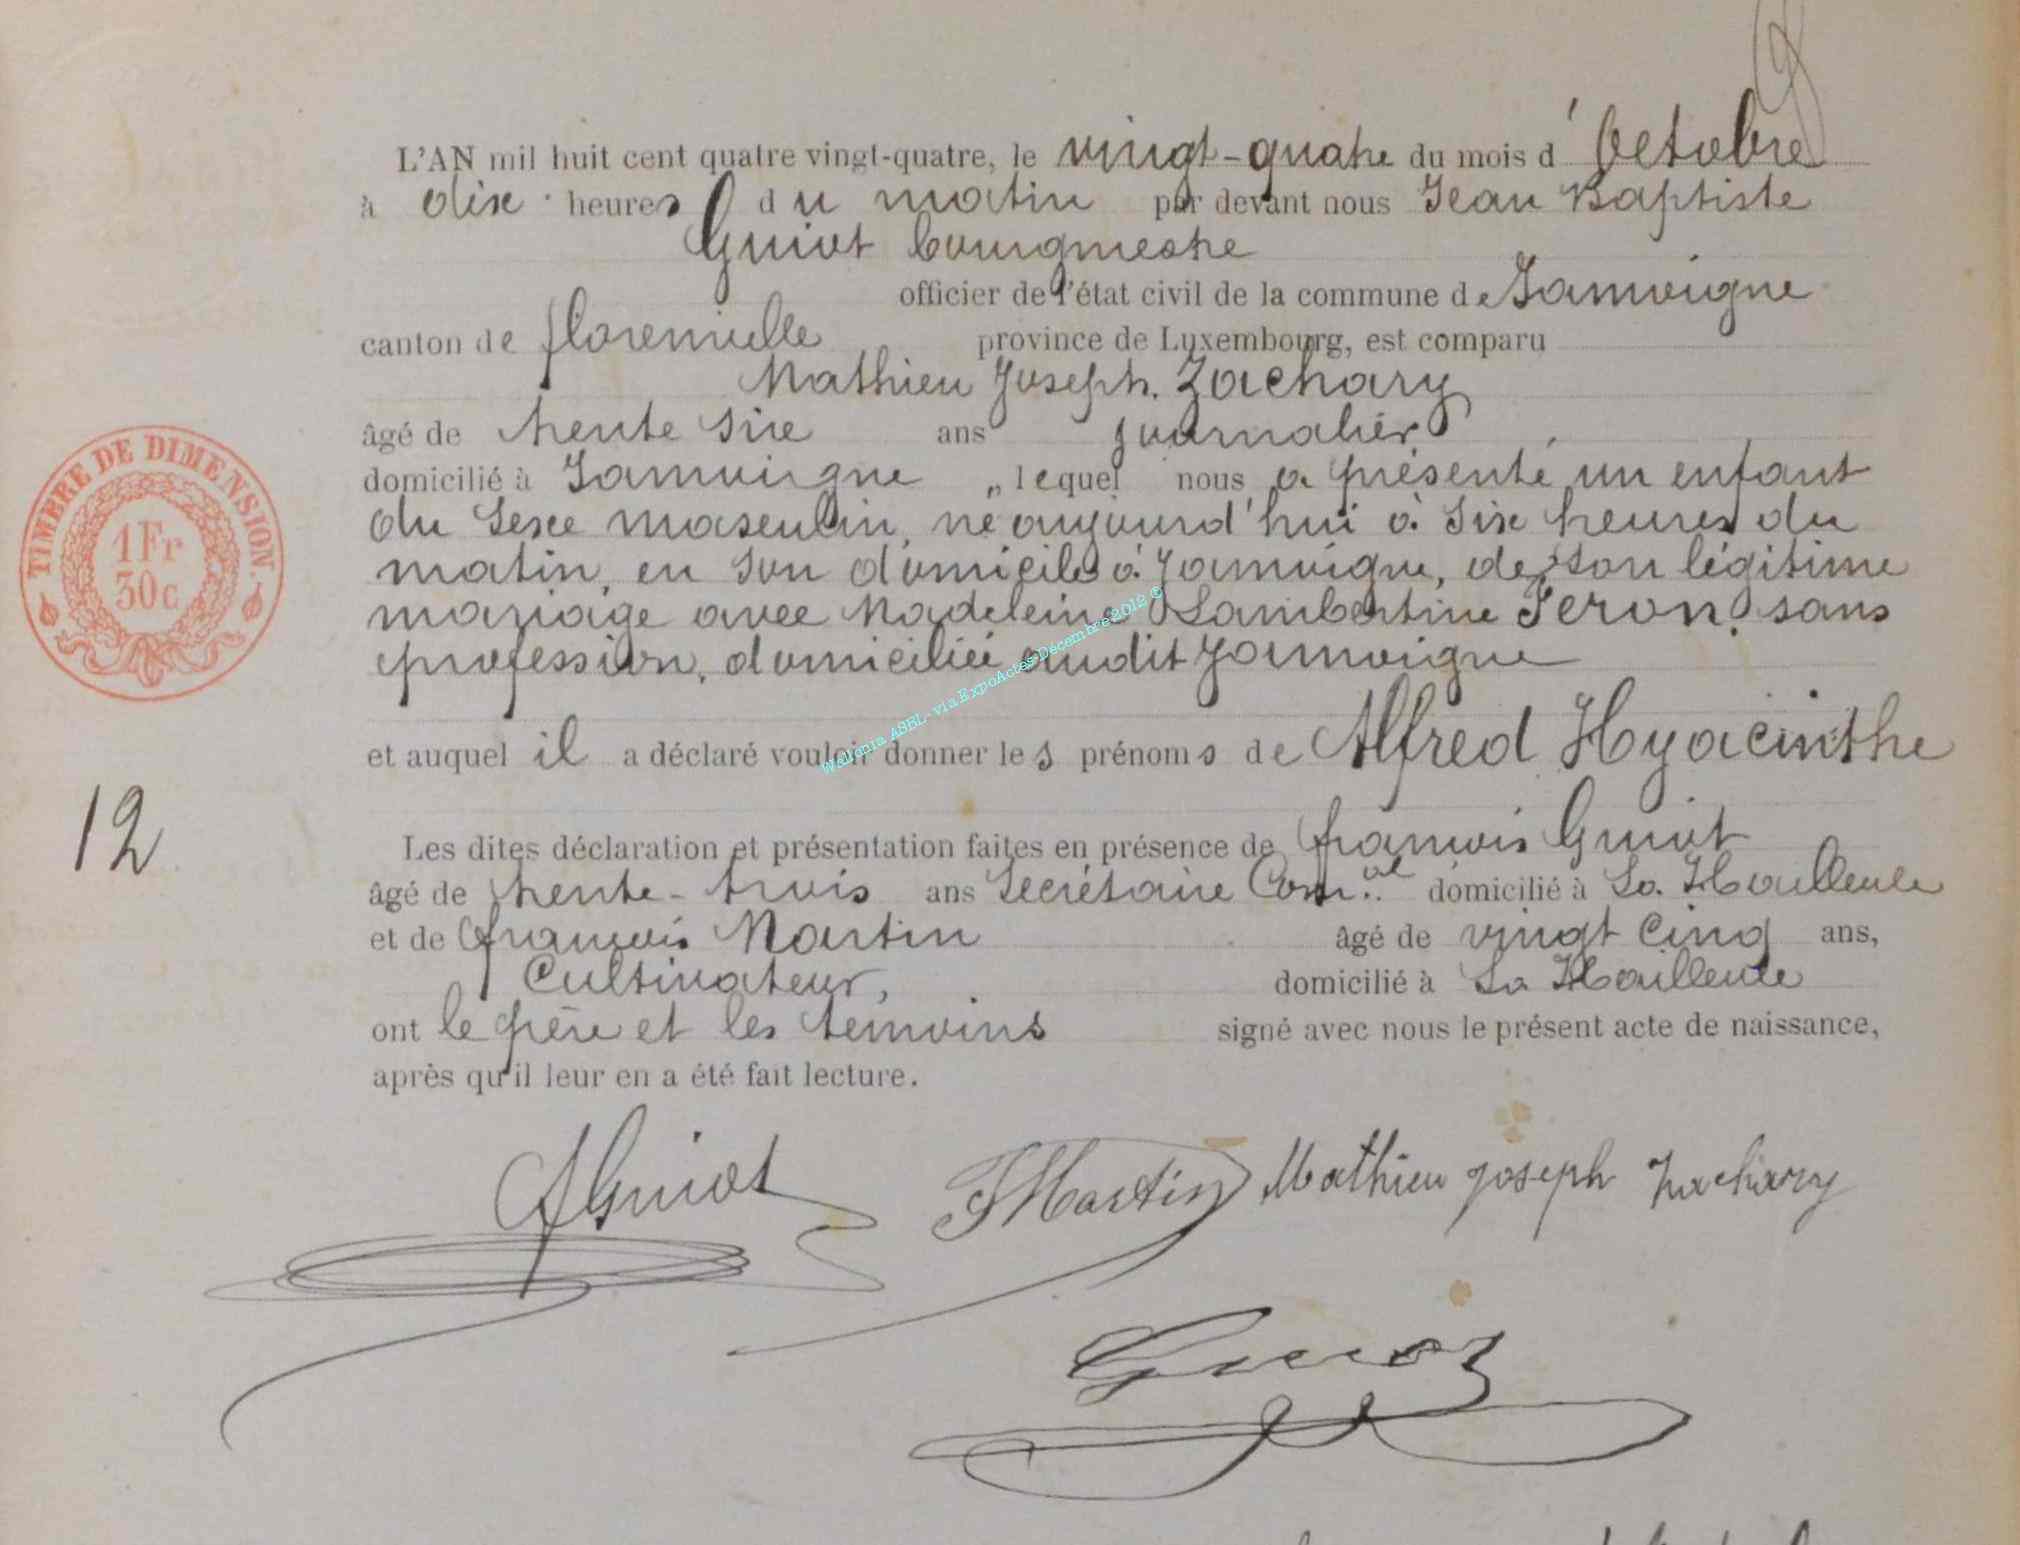 L'AN mil huit cent quatre vingt-quatre, le vingt-quatre du mois d'Octobre
à dix heures du matin par devant nous Jean Baptiste
Guiot bourgmestre
officier de l'état civil de la commune de Jamoigne
canton de florenville province de Luxembourg, est comparu
Mathieu Joseph Zachary
âgé de trente six ans journalier,
domicilié à Jamoigne, lequel nous a présenté un enfant
du sexe masculin, né aujourd'hui à six heures du
matin, en son domicile à Jamoigne, de son légitime
mariage avec Madeleine Lambertine Feron, sans
profession, domiciliée audit Jamoigne
et auquel il a déclaré vouloir donner les prénoms de Alfred Hyacinthe
Les dites déclaration et présentation faites en présence de françois Guiot
âgé de trente-trois ans Secrétaire Com.al domicilié à La Hailleule
et de françois Martin âgé de vingt cinq ans,
Cultivateur, domicilié à La Hailleule
ont le père et les témoins signé avec nous le présent acte de naissance,
après qu'il leur en a été fait lecture.
TIMBRE DE DIMENSION.
1 Fr
30c
12
Wallonia ASBL - via ExpoActes Décembre 2012 ©
FGuiot FMartin Mathieu joseph Zachary
Guiot